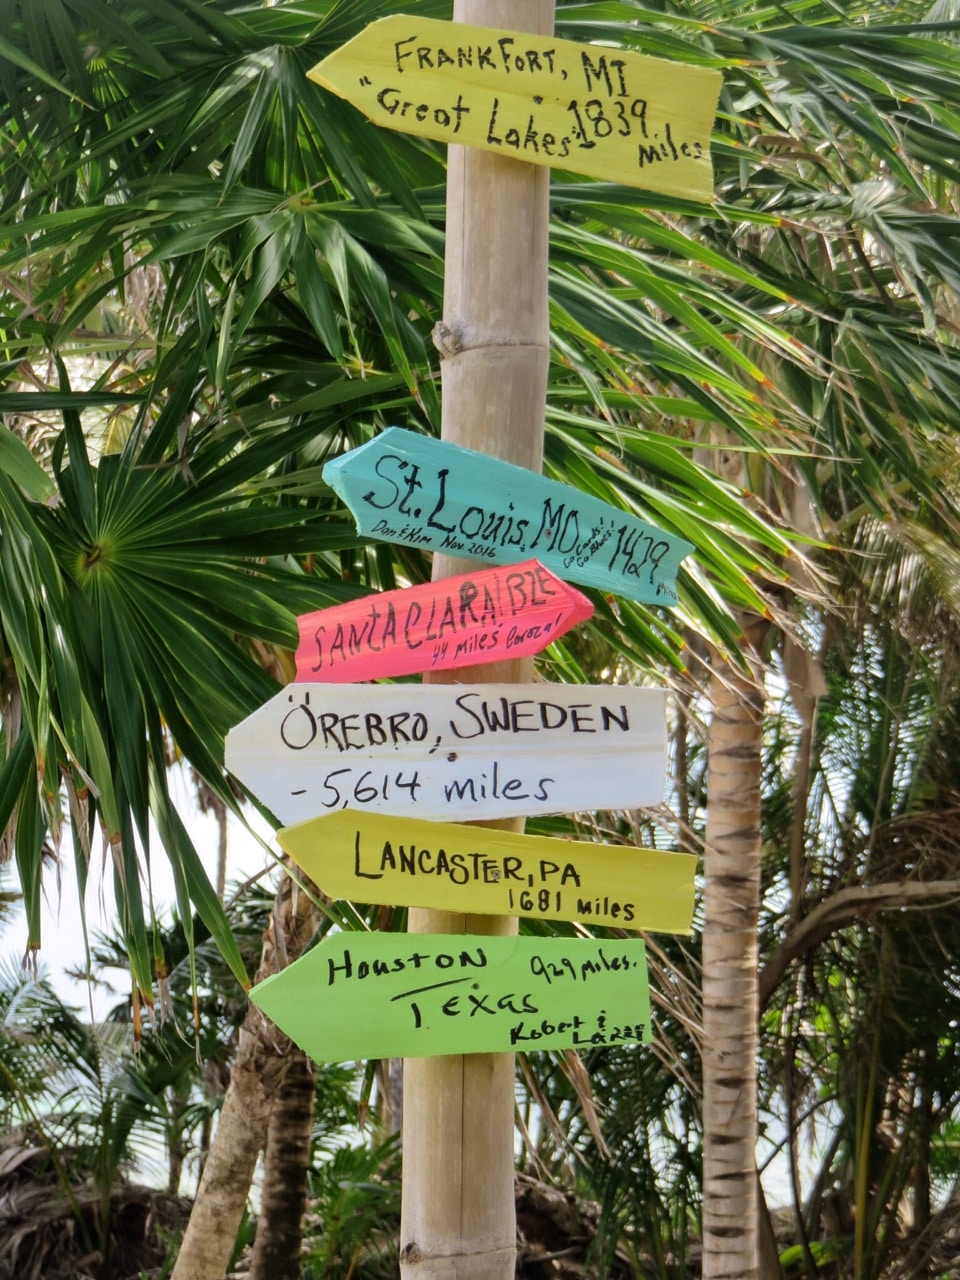 FRANKFORT, MI
"Great Lakes" 1839 miles
St. Louis, MO. 1429 miles
Go Cards!
Go Blues!
Dan & Kim Nov. 2016
SANTA CLARA/BZE
44 Miles Coroza!
ÖREBRO, SWEDEN
- 5,614 miles
LANCASTER, PA
1681 miles
Houston 929 miles.
Texas
Robert &